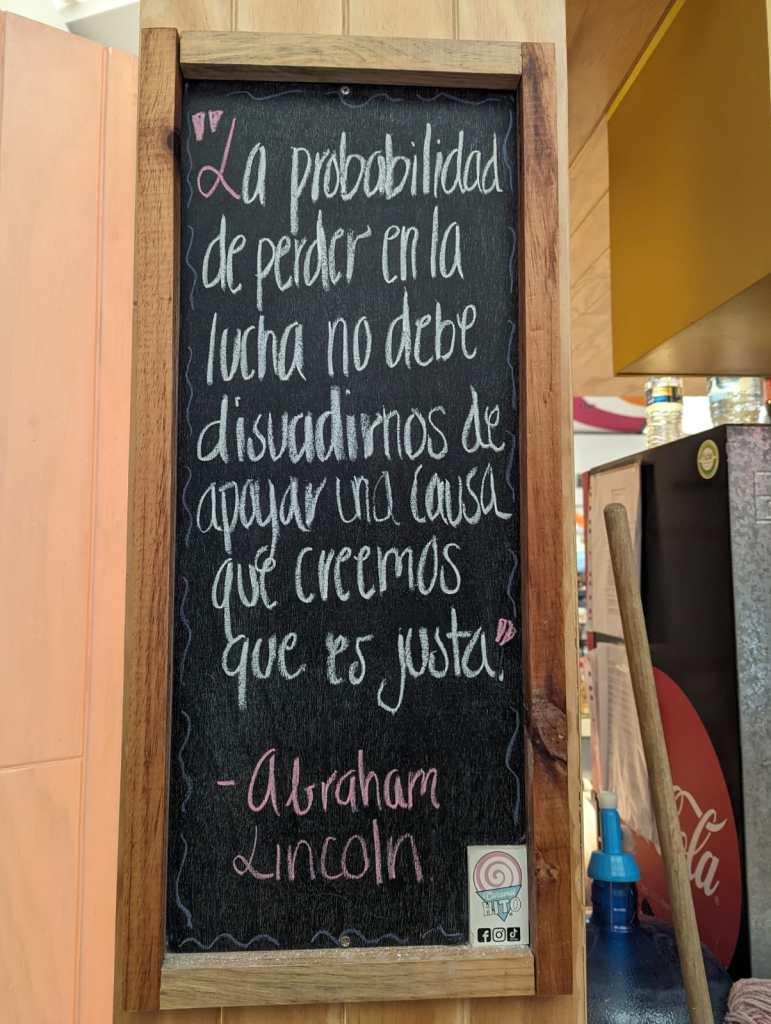 "La probabilidad
de perder en la
lucha no debe
disuadirnos de
apoyar una causa
que creemos
que es justa."
- Abraham
Lincoln
HITO
Cola